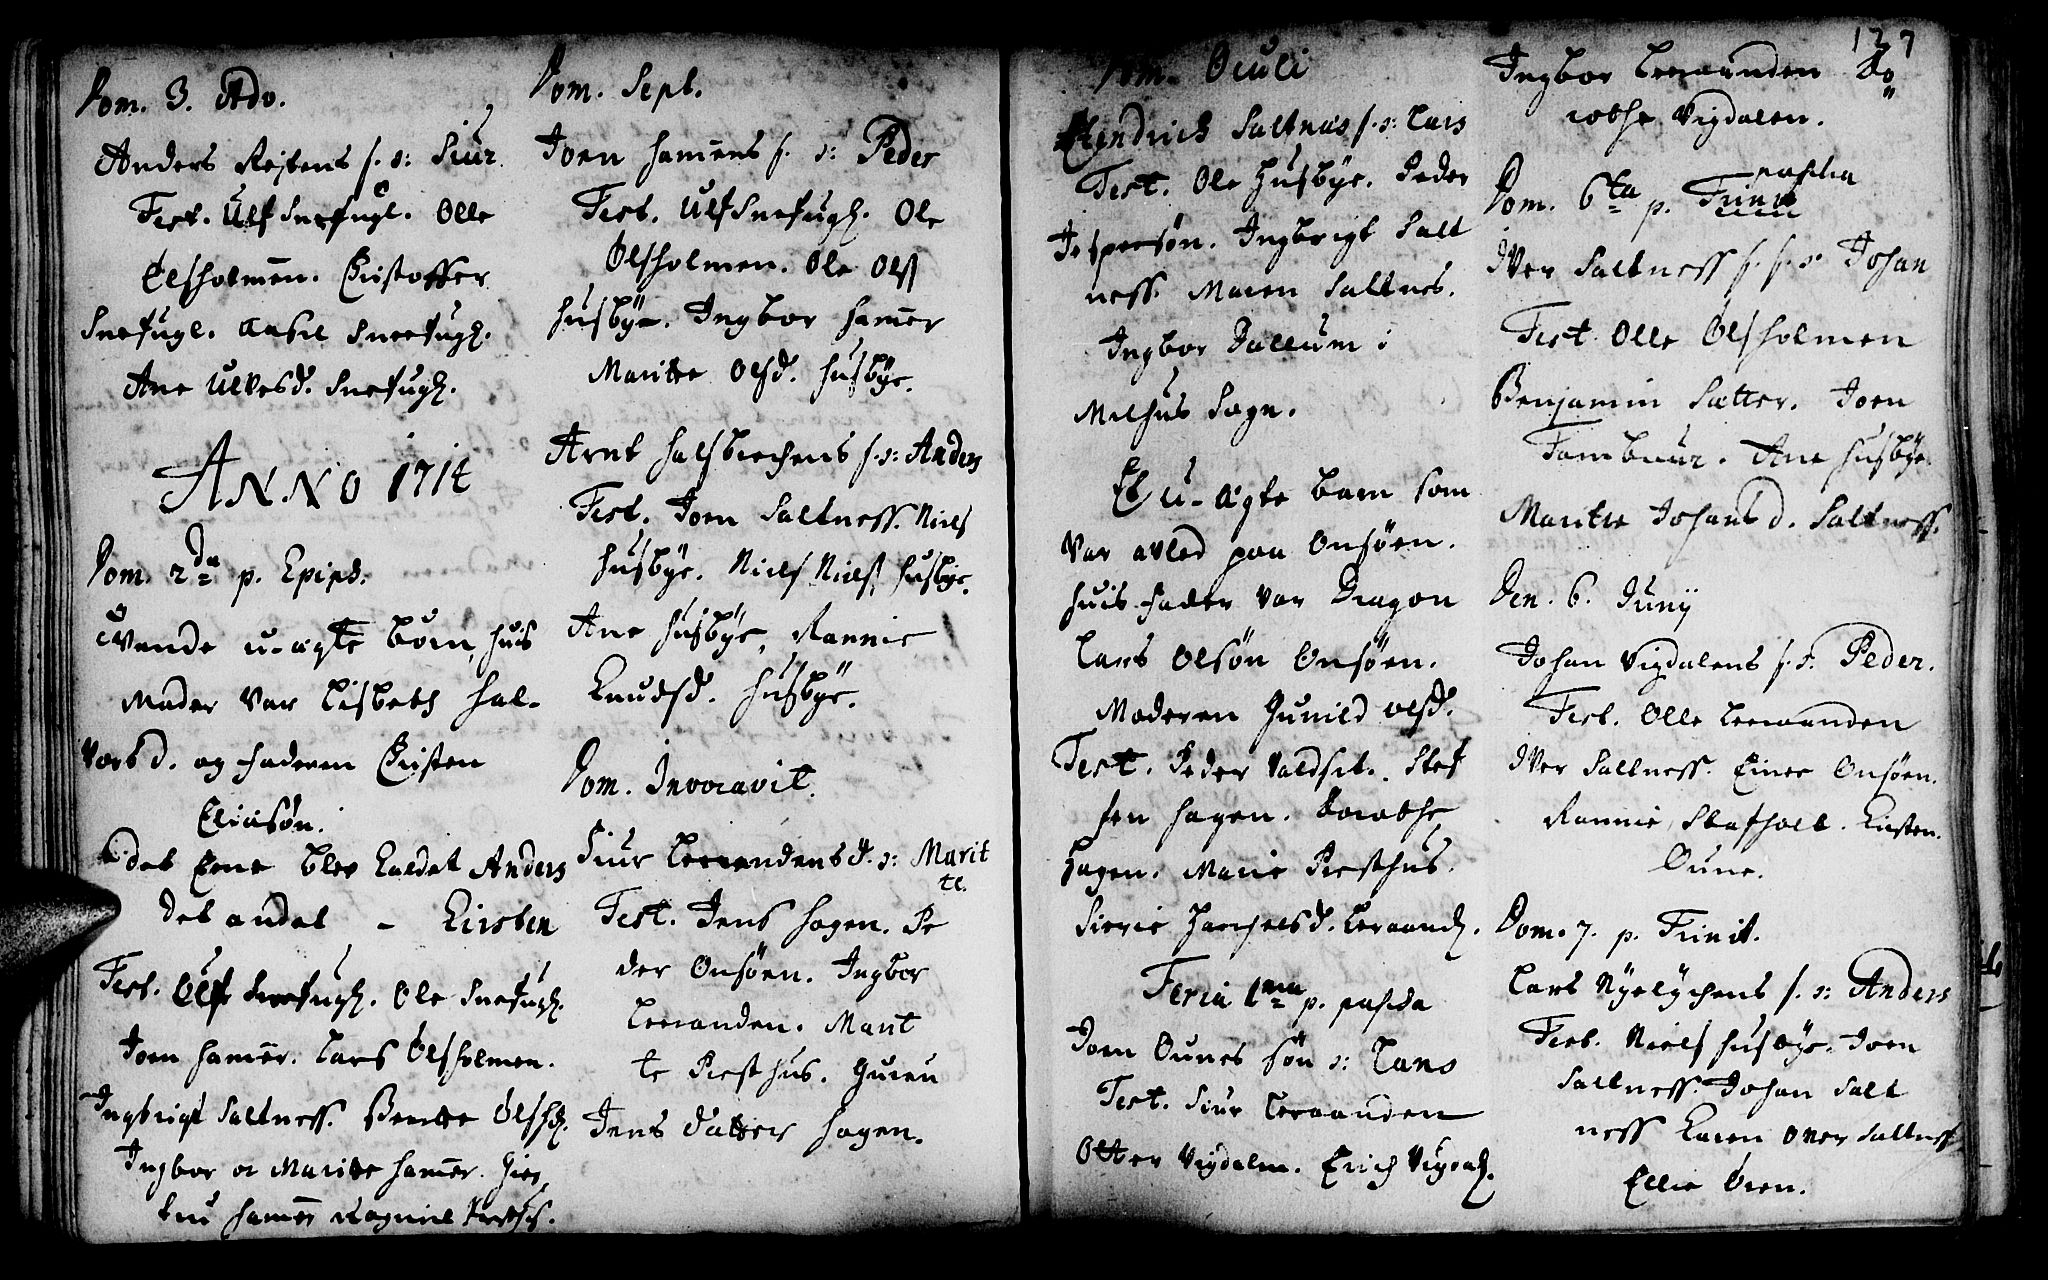 Dom. 3. Adv.
Anders Rejstens s. v: Siur
Test. Ulf Snefugl. Olle
Ølsholmen. Christoffer
Snefugl. Snefugl.
Ane Ulvesd. Snefugl.
ANNO 1714
Dom. 2da p. Epiph:
Tvende u-ægte børn, huis
Moder var Lisbeth Hal-
vorsd. og Faderen Christen
Eliasøn.
det Eene blev Kaldet Anders
det andet - Kirsten
Test. Ulf Snefugl. Ole Snefugl.
Joen Hamer. Lars Ølsholmen.
Ingbrigt Saltness. Bentte Ølsh.
Ingbor oc Maritte Hamer.
Hamer Ragnild
Dom. Sept.
Joen Hamers s. v: Peder
Test. Ulf Snefugl. Ole
Ølsholmen. Ole Ols
Husbÿe. Ingbor Hamer
Maritte Olsd. Husbÿe.
Arnt s. v: Anders
Test. Joen Saltness. Niels
Husbÿe. Niels Niels. Husbÿe.
Ane Husbÿe, Rannie
Knudsd. Husbÿe.
Dom. Invocavit.
Siur Leraandens d. v: Marit
te.
Test. Jens Hagen. Pe
der Onsøen. Ingbor
Leraanden. Marit
te Presthus. Guren
Jens datter Hagen.
Dom. Oculi
Hendrich Saltnes s. v: Lars
Test. Ole Husbye. Peder
Jespersøn. Ingbrigt Salt
ness. Maren Saltnes.
Ingbor i
Melhus Sogn.
Et u-ægte barn som
var avled paa Onsøen.
huis Fader var Dragon
Lars Olsøn Onsøen.
Moderen Gunild Olsd.
Test. Peder Valdset. Stef
fen Hagen. Dorothe
Hagen. Marie Presthus.
Sirrie Leraand.
Feria 1ma p. pascha
Joen Ounes søn v: Lars
Test. Siur Leraanden
Otter Vigdalen. Erich Vigdal.
127
Ingbor Leeraanden Do
rothe Vigdalen.
Dom. 6ta p. Trinit pascha
Iver Saltness s. s. v: Johan
Test. Olle Ølsholmen
Benjamin Sætter. Joen
Tambuur. Ane Husbÿe.
Maritte Johansd. Saltness.
Den. 6. Junij
Johan Vigdalens s. v: Peder.
Test. Olle Leeraanden
Iver Saltness. Einer Onsøen.
Rannie Kirsten.
Oune.
Dom. 7. p. Trinit.
Lars Nyelÿchens s. v: Anders
Test. Niels Husbÿe. Joen
Saltness. Johan Salt
ness Karen Saltness
Ellie Øien.